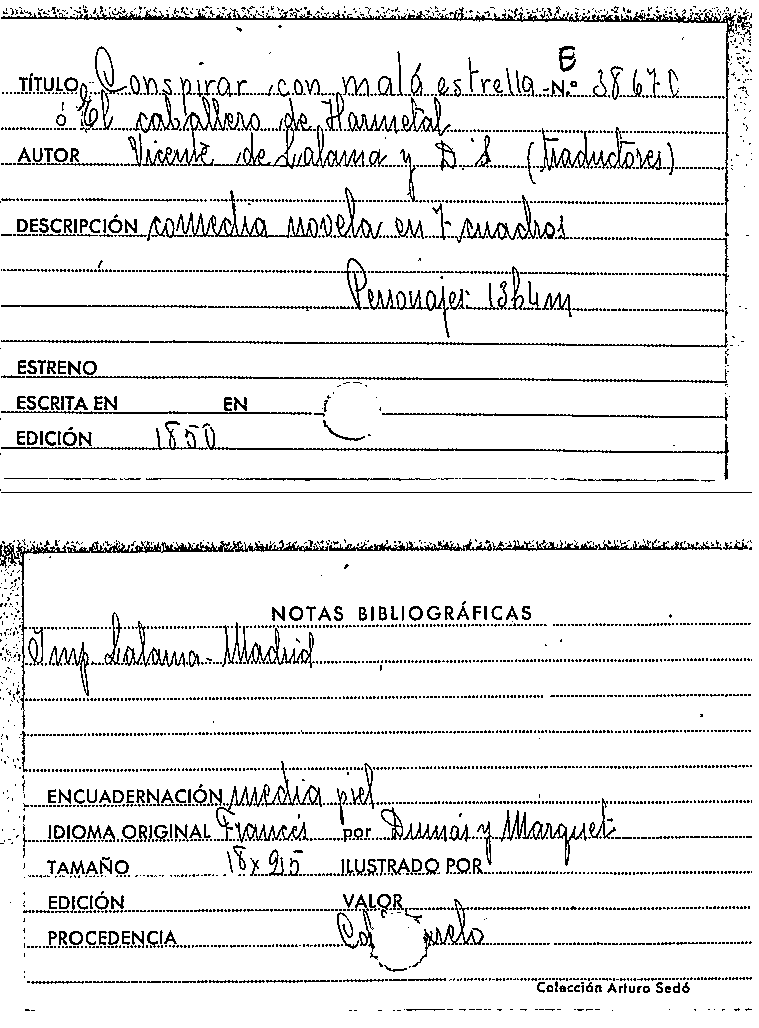 E
TÍTULO Conspirar con mala estrella N.º 38670
ó El caballero de Harmetal
AUTOR Vicente de Lalama y D. S (traductores)
DESCRIPCIÓN comedia novela en 7 cuadros
Personajes 13h4m
ESTRENO
ESCRITA EN EN
EDICIÓN 1850
NOTAS BIBLIOGRÁFICAS
Imp Lalama - Madrid
ENCUADERNACIÓN media piel
IDIOMA ORIGINAL Francés por Dumas y Marquet
TAMAÑO 18 x ILUSTRADO POR
EDICIÓN VALOR
PROCEDENCIA
Colección Arturo Sedó